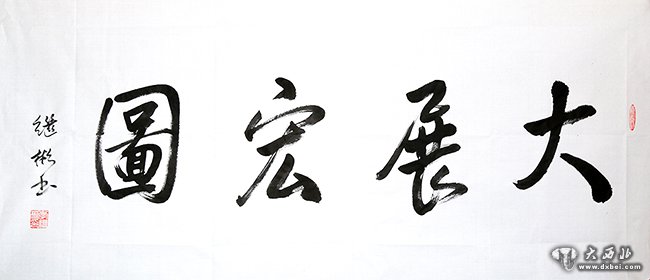 大展宏圖
繼彬书
大西北
www.dxbei.com